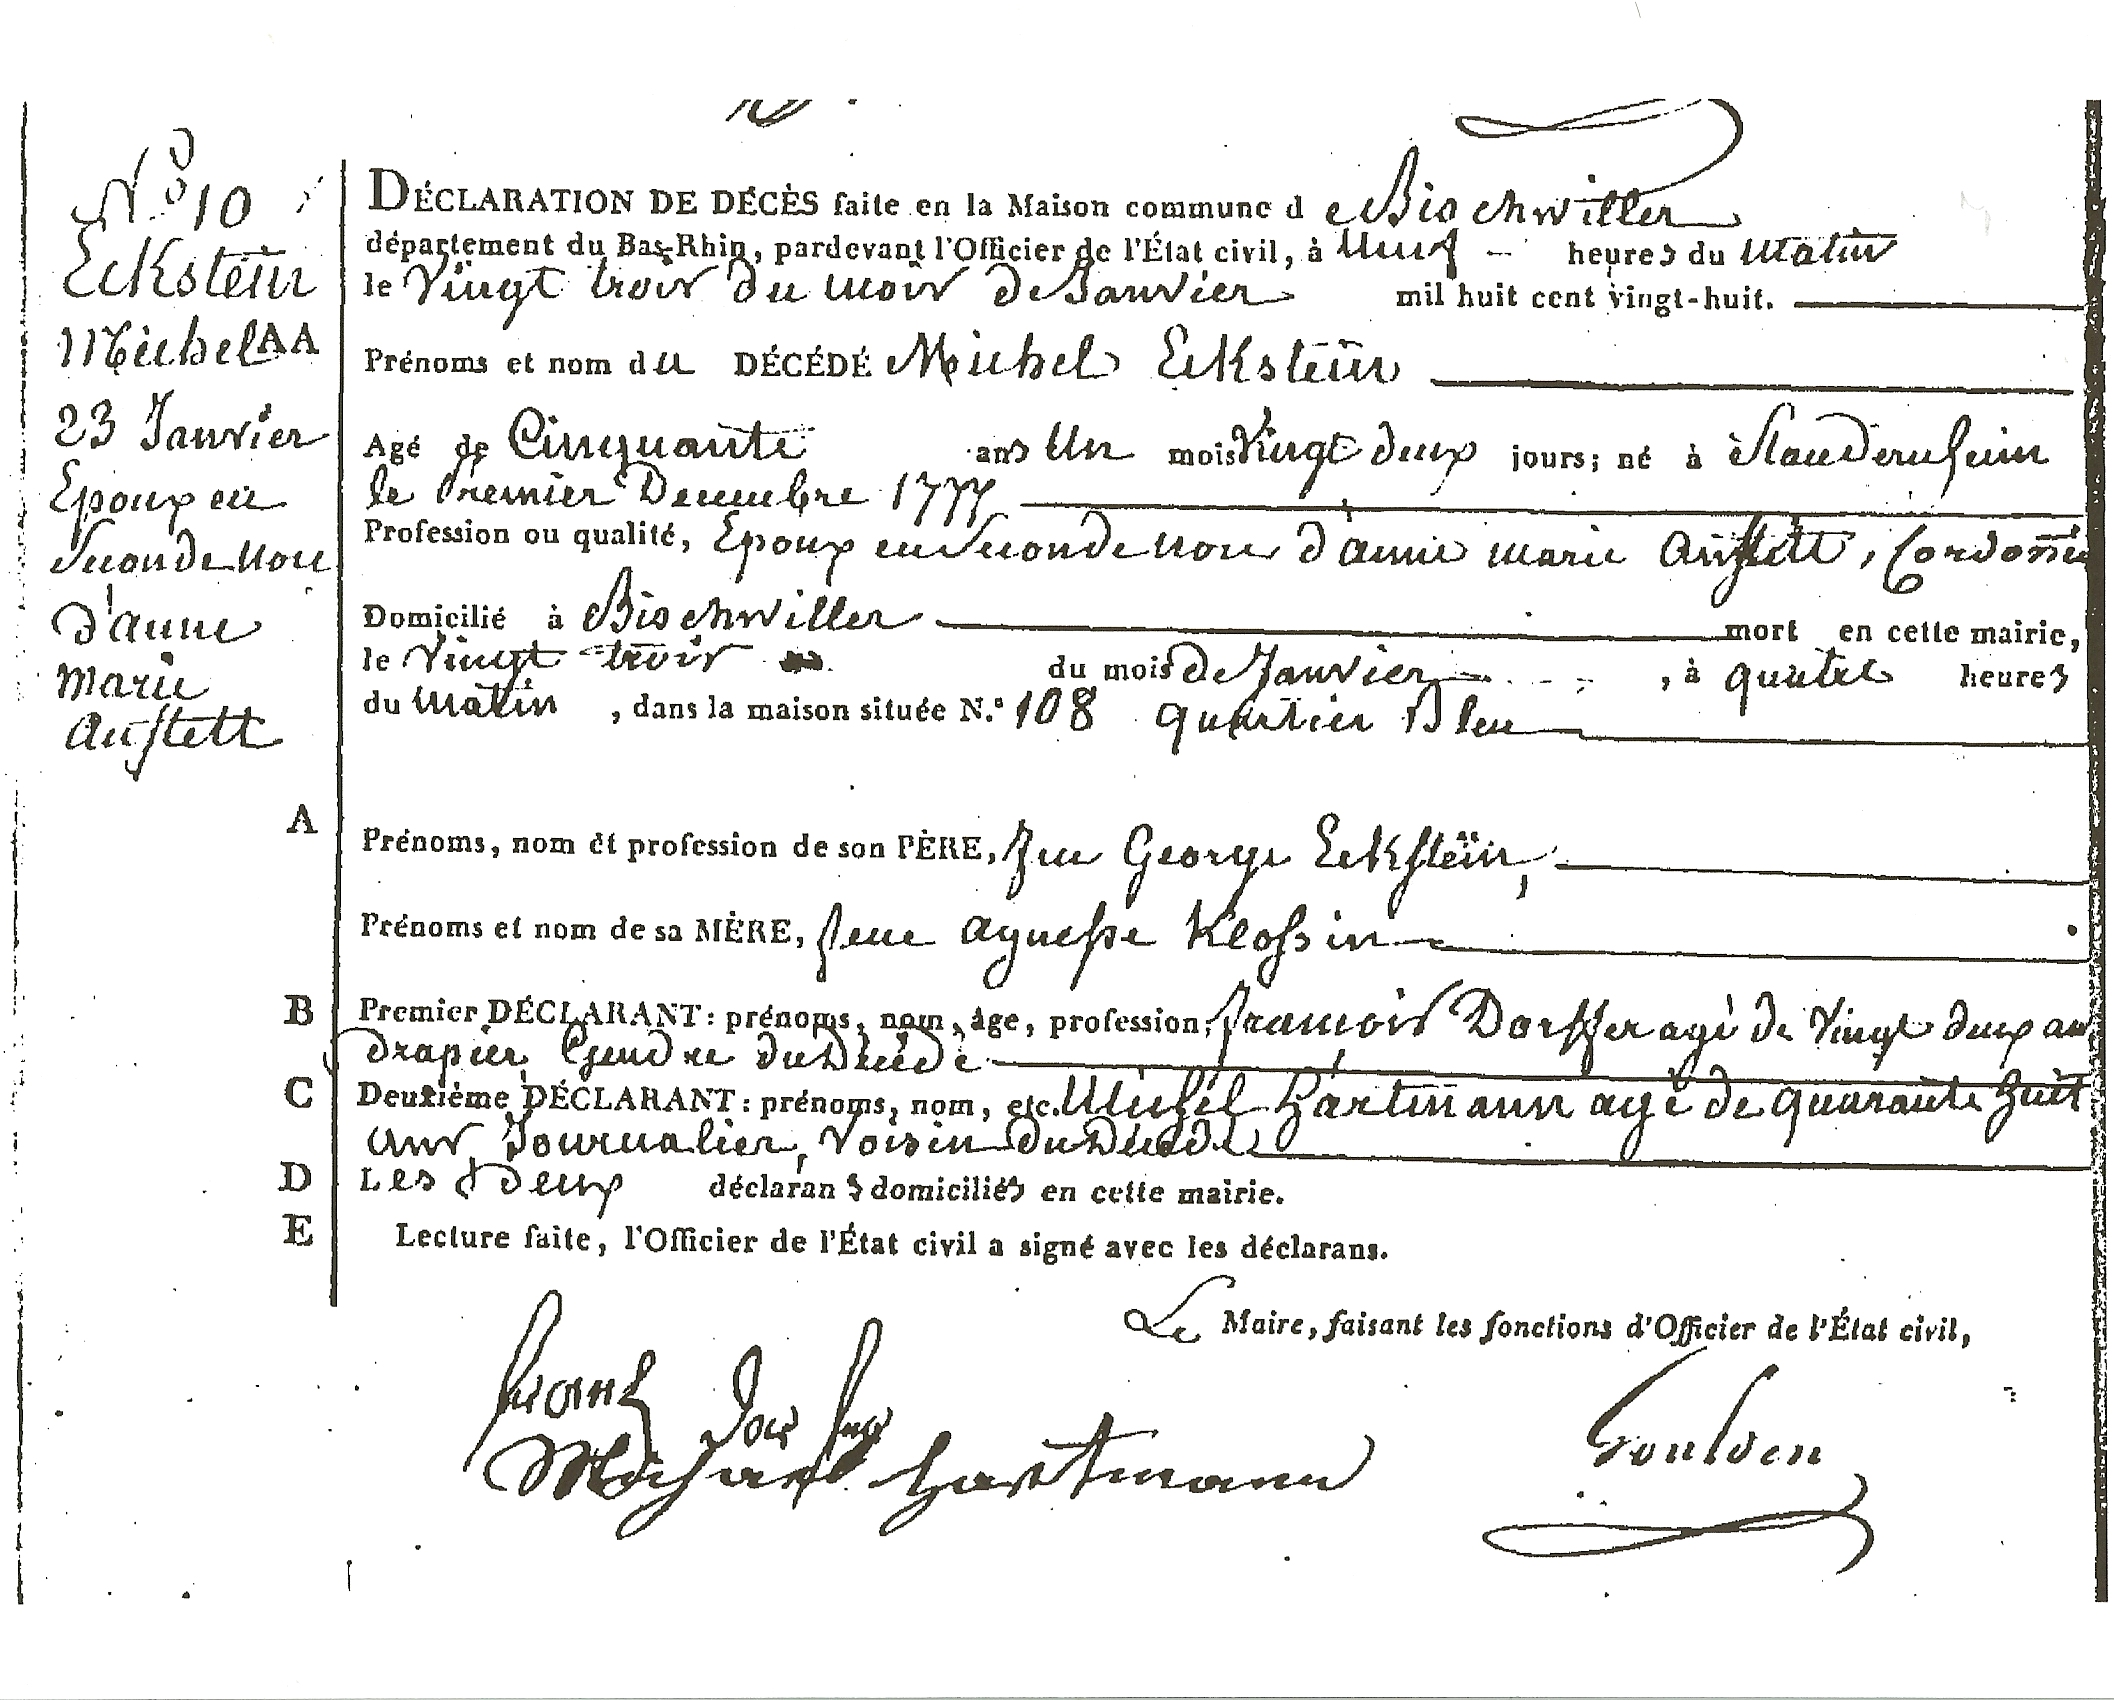 N° 10
Eckstein
Michel AA
23 Janvier
Epoux en
Seconde noce
d'anne
marie
Anstett
DÉCLARATION DE DÉCÈS faite en la Maison commune de Bischwiller
département du Bas-Rhin, pardevant l'Officier de l'État civil, à Neuf heures du matin
le Vingt trois du mois de Janvier mil huit cent vingt-huit.
Prénoms et nom du DÉCÉDÉ Michel Eckstein
Agé de Cinquante ans Un mois Vingt deux jours; né à Staudernheim
le Premier Decembre 1777
Profession ou qualité, Epoux en Seconde noce d'anne marie Anstett, Cordonnie
Domicilié à Bischwiller mort en cette mairie,
le Vingt trois du mois de Janvier, à quatre heures
du matin, dans la maison située N.° 108 quartier Bleu
A
Prénoms, nom et profession de son PÈRE, feu George Eckstein,
Prénoms et nom de sa MÈRE, feue agnesse Klossin
B
Premier DÉCLARANT: prénoms, nom, âge, profession, francois Dorffer agé de Vingt deux ans
drapier, Gendre du Décédé
C
Deuxième DÉCLARANT: prénoms, nom, etc. Michel Hartmann agé de quarante huit
ans, Journalier, Voisin du Décédé
D
Les Deux déclarans domiciliés en cette mairie.
E
Lecture faite, l'Officier de l'État civil a signé avec les déclarans.
Le Maire, faisant les fonctions d'Officier de l'État civil,
Franz Dorffer
Michael Hartmann
Goulden